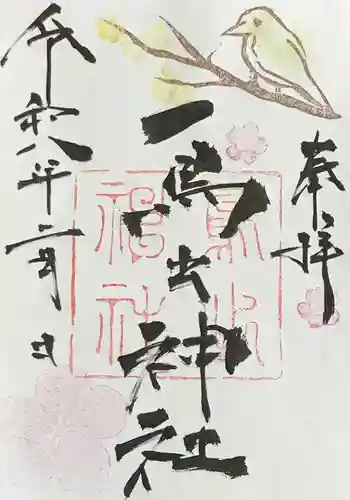 奉拝
鳥出神社
鳥出
神社
令和八年二月 日